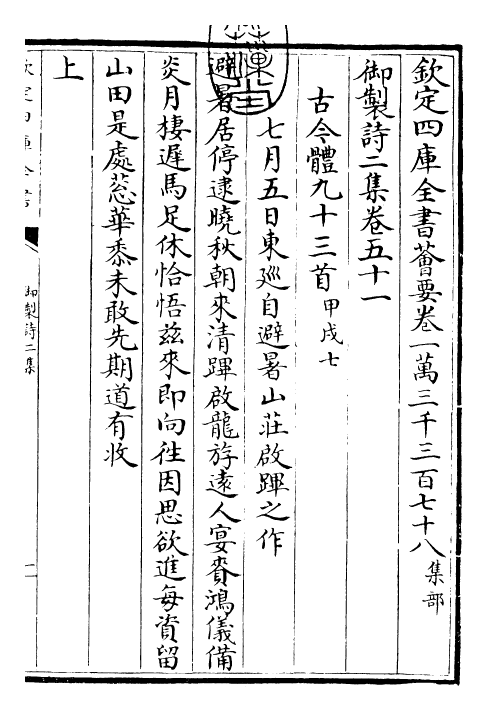 欽定四庫全書薈要卷一萬三千三百七十八集部
御製詩二集卷五十一
古今體九十三首甲戌七
七月五日東廵自避暑山莊啟蹕之作
避暑居停逮曉秋朝來清蹕啟龍斿遠人宴賚鴻儀備
炎月棲遲馬足休恰悟兹來即向徃因思欲進每資留
山田是處蕊華黍未敢先期道有收
上
欽定四庫全書
御製詩二集